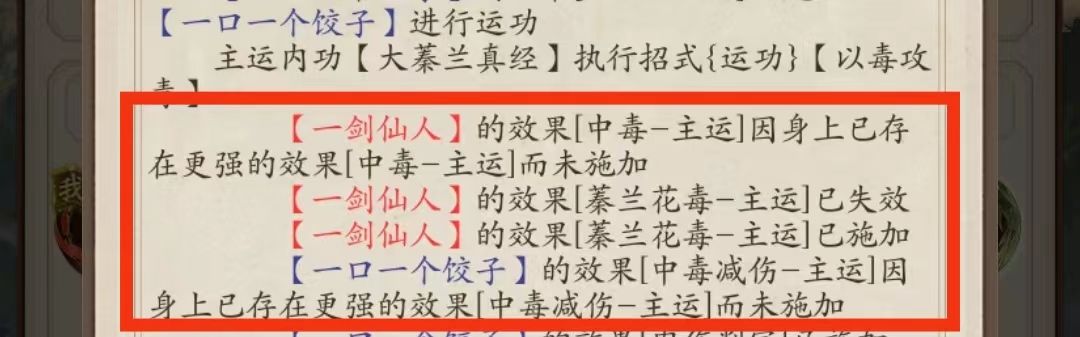 【一口一个饺子】进行运功
主运内功【大蓁兰真经】执行招式{运功}【以毒攻
毒】
【一剑仙人】的效果[中毒-主运]因身上已存
在更强的效果[中毒-主运]而未施加
【一剑仙人】的效果[蓁兰花毒-主运]已失效
【一剑仙人】的效果[蓁兰花毒-主运]已施加
【一口一个饺子】的效果[中毒减伤-主运]因
身上已存在更强的效果[中毒减伤-主运]而未施加
我